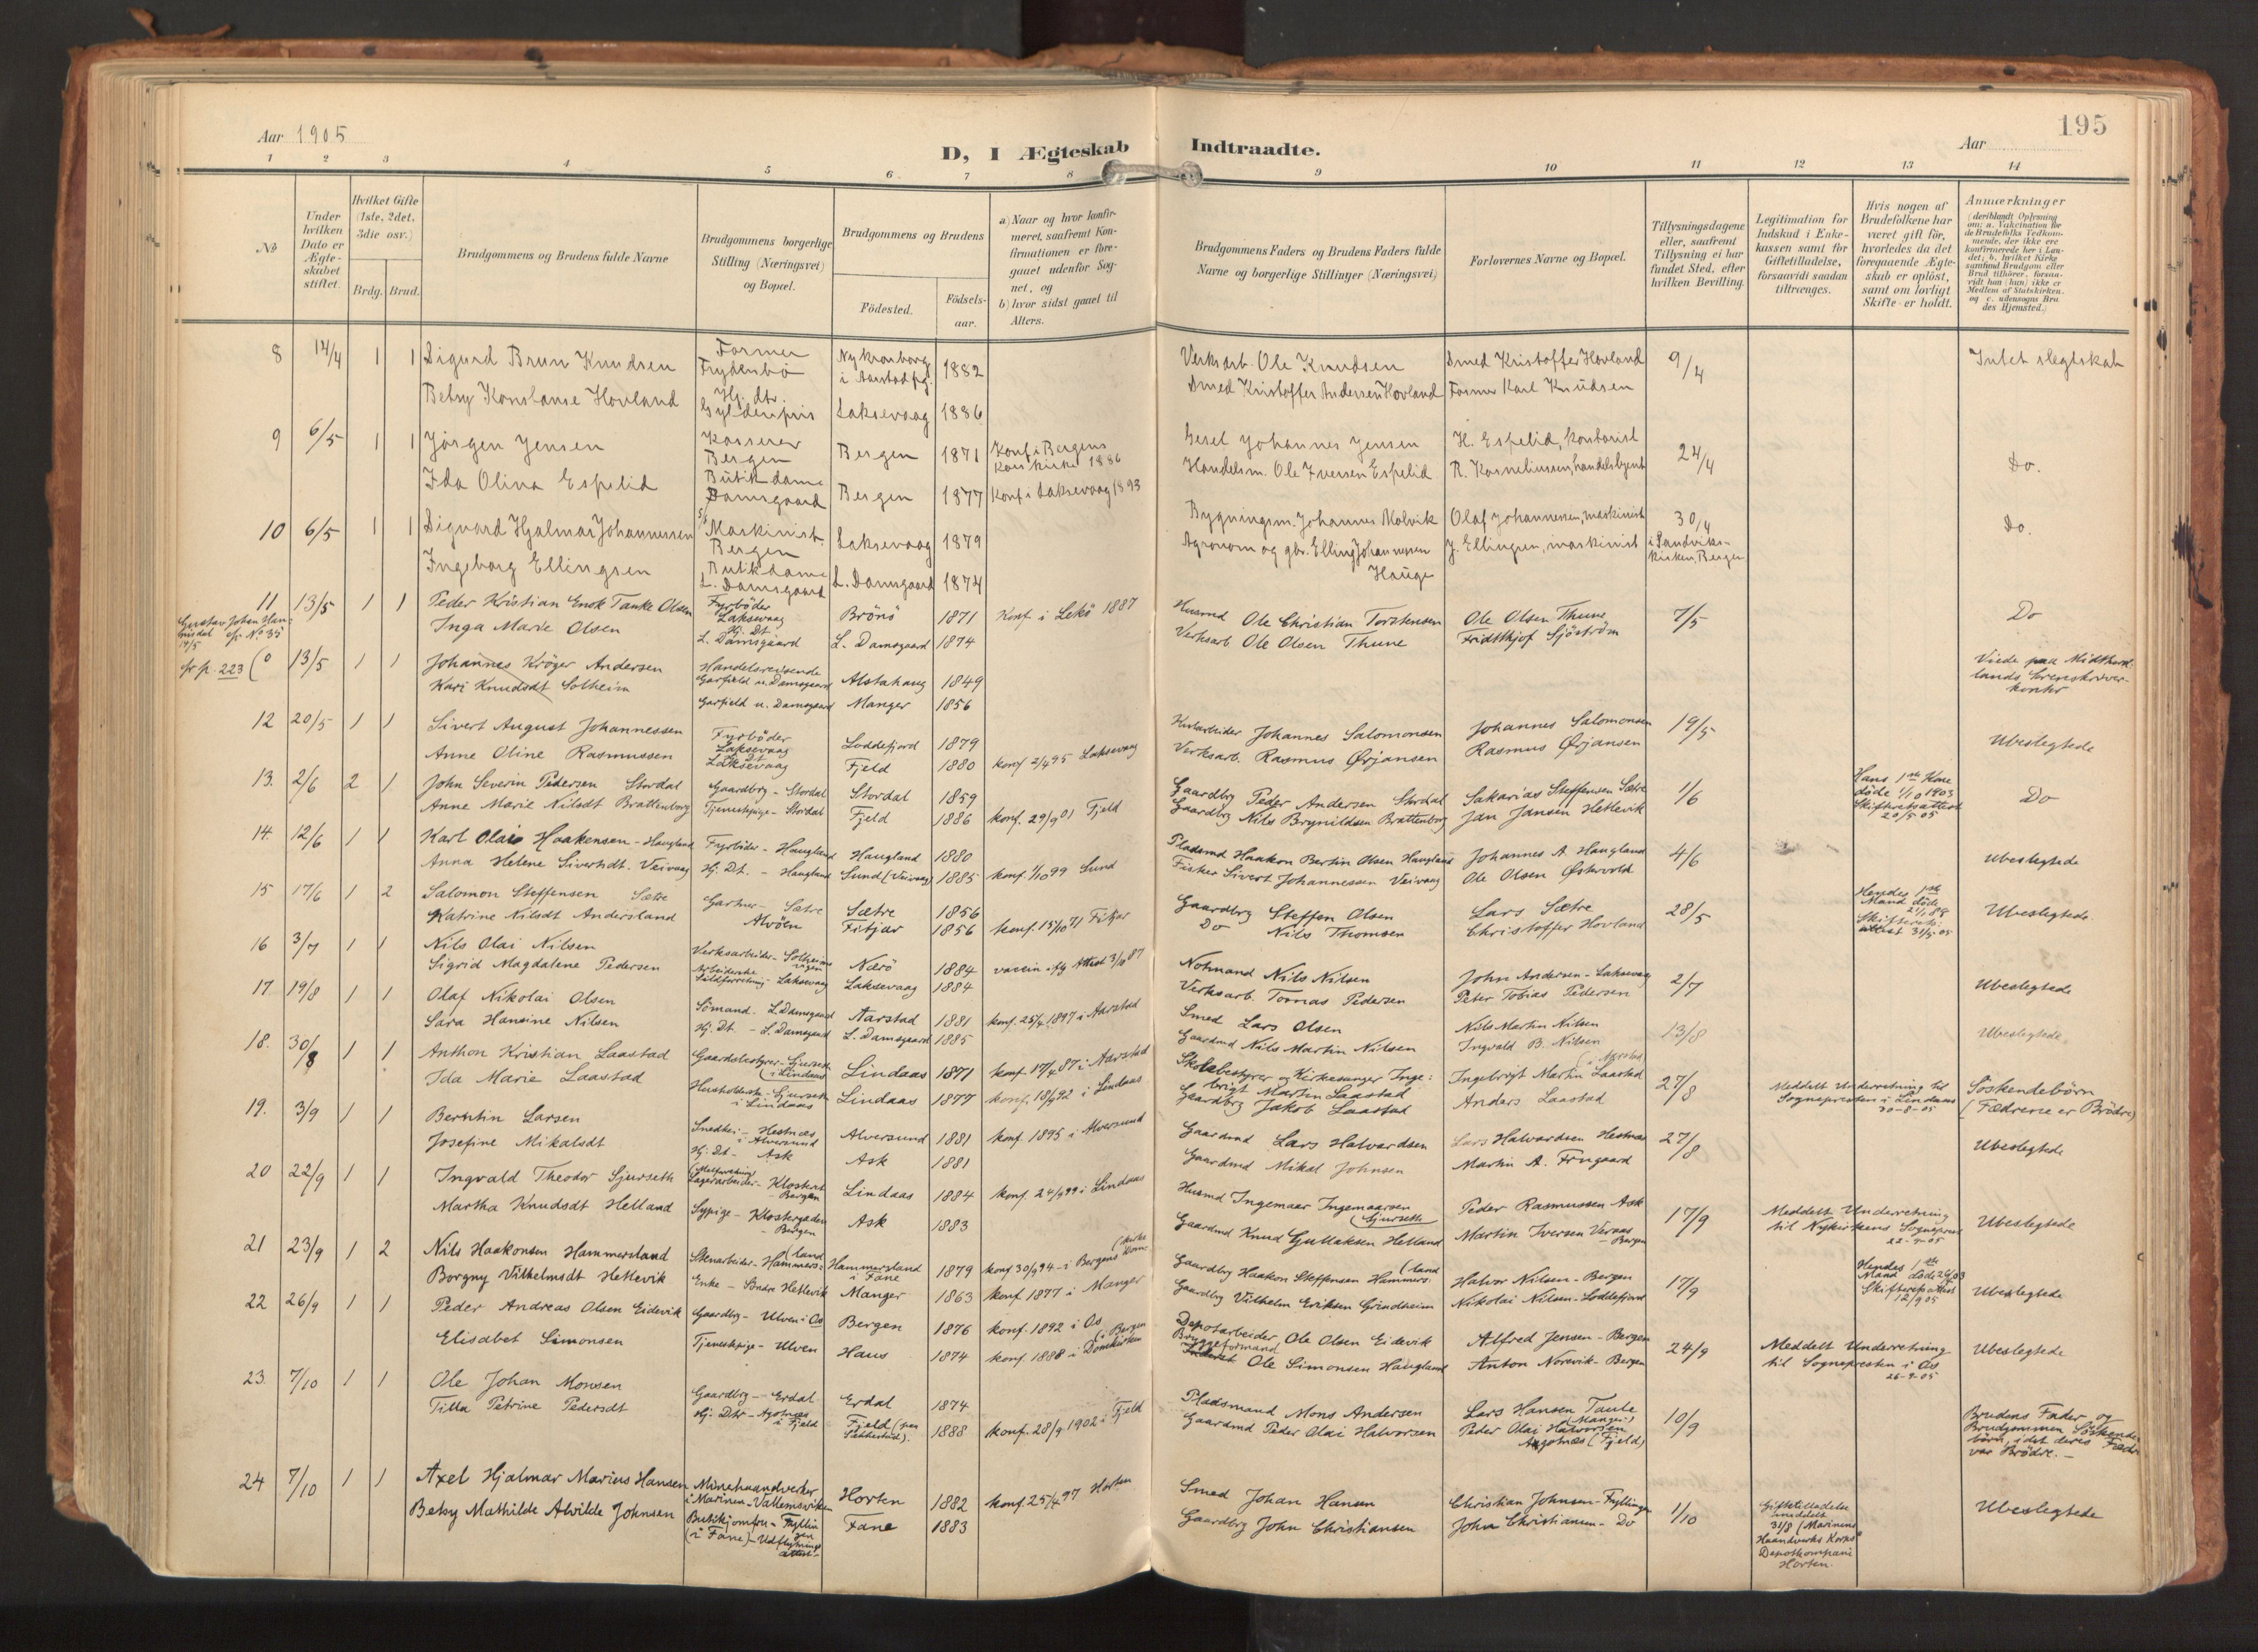 195
Aar 1905
D, I Ægteskab Indtraadte.
Aar
1 2 3 4 5 6 7 8 9 10 11 12 13 14
No
Under hvilken Dato er Ægteskabet stiftet.
Hvilket Gifte (1ste, 2det, 3die osv.)
Brdg. Brud.
Brudgommens og Brudens fulde Navne
Brudgommens borgerlige Stilling (Næringsvei) og Bopæl.
Brudgommens og Brudens
Födested.
Födselsaar.
a) Naar og hvor konfirmeret, saafremt Konfirmationen er foregaaet udenfor Sognet, og
b) hvor sidst gaaet til Alters.
Brudgommens Faders og Brudens Faders fulde Navne og borgerlige Stillinger (Næringsvei)
Forlovernes Navne og Bopæl.
Tillysningsdagene eller, saafremt Tillysning ei har fundet Sted, efter hvilken Bevilling.
Legitimation for Indskud i Enkekassen samt for Giftetilladelse, forsaavidt saadan tiltrænges.
Hvis nogen af Brudefolkene har været gift för, hvorledes da det foregaaende Ægteskab er oplöst, samt om lovligt Skifte er holdt.
Anmærkninger (deriblandt Oplysning om: a. Vakcination for de Brudefolks Vedkommende, der ikke ere konfirmerede her i Landet; b. hvilket Kirkesamfund Brudgom eller Brud tilhörer, forsaavidt han (hun) ikke er Medlem af Statskirken. og c. udensogns Brudes Hjemsted.)
8 14/4 1 1 Sigurd Brun Knudsen Former Frydenbö Ny kronborg i Aarstad pg. 1882 Verksarb. Ole Knudsen Smed Kristoffer Hovland 9/4 Intet slegtskab
Betsy Konstanse Hovland Hj. dtr. Gyldenpris Laksevaag 1886 Smed Kristoffer Andersen Hovland Former Karl Knudsen
9 6/5 1 1 Jørgen Jensen Kasserer Bergen Bergen 1871 Konf i Bergens Korskirke 1886 Johannes Jensen H. Espelid, kontorist 24/4 Do.
Ida Olina Espelid Butikdame Damsgaard Bergen 1877 Konf i Laksevaag 1893 Handelsm. Ole Iversen Espelid R. Korneliussen, handelsbetjent
10 6/5 1 1 Sigvard Hjalmar Johannessen Maskinist. Bergen Laksevaag 1879 Bygningsm. Johannes Molvik Olaf Johannessen, maskinist 30/4 i Sandvikskirken, Bergen Do.
Ingeborg Ellingsen Butikdame L. Damsgaard L. Damsgaard 1874 Agronom og gbr. Elling Johannessen Hauge J. Ellingsen, maskinist
11 13/5 1 1 Peder Kristian Enok Tanke Olsen Fyrböder Laksevaag Brönö 1871 Konf i Lekö 1887 Husmd Ole Christian Torstensen Ole Olsen Thune 7/5 Do
Inga Marie Olsen Hj. Dt L. Damsgaard L. Damsgaard 1874 Verksarb Ole Olsen Thune Fridthjof Sjöström
Gustav Johan cfr No 35 14/5
cfr p. 223 ( 0 13/5 1 1 Johannes Kröger Andersen Handelsreisende Garfield v. Damsgaard Alstahaug 1849 Viede paa Midthordlands Sorenskriverkontor
Kari Knudsdt Solheim Garfield v. Damsgaard Manger 1856
12 20/5 1 1 Sivert August Johannessen Fyrböder Laksevaag Loddefjord 1879 Johannes Salomonsen Johannes Salomonsen 19/5 Ubeslegtede
Anne Oline Rasmussen Hj. Dt Laksevaag Fjeld 1880 konf 2/4 95 Laksevaag Verksarb. Rasmus Ørjansen Rasmus Ørjansen
13. 2/6 2 1 John Severin Pedersen Stordal Gaardbrg - Stordal Stordal 1859 Gaardbrg Peder Andersen Stordal Sakarias Steffensen Sætre 1/6 Hans 1ste Kone döde 1/10 1903 Skifteretsattest 20/5 05 Do
Anne Marie Nilsdt Brattenborg Tjenestepige - Stordal Fjeld 1886 konf. 29/9 01 Fjeld Gaardbrg Nils Brynildsen Brattenborg Jan Jansen Hetlevik
14. 12/6 1 1 Karl Olai Haakensen - Haugland Fyrböder - Haugland Haugland 1880 Pladsmd Haakon Bertin Olsen Haugland Johannes A. Haugland 4/6 Ubeslegtede
Anna Helene Sivertsdt. Veivaag Hj. Dt. - Haugland Sund (Veivaag) 1885 konf. 1/10 99 Sund Fisker Sivert Johannessen Veivaag Ole Olsen Østervold
15 17/6 1 2 Salomon Steffensen Sætre Gartner - Sætre Sætre 1856 Gaardbrg Steffen Olsen Lars Sætre 28/5 Hendes 1ste Mand döde 2/1 88 Skifteretsattest 31/5 05 Ubeslegtede.
Katrine Nilsdt Andersland Alvöen Fitjar 1856 konf. 15/10 71 Fitjar Do Nils Thomsen Christoffer Hovland
16 3/7 1 1 Nils Olai Nilsen Verksarbeider - Solheimsvigen Nærö 1884 vaccin ifg Attest 3/10 87 Notmand Nils Nilsen John Andersen - Laksevaag 2/7 Ubeslegtede
Sigrid Magdalene Pedersen Arbeiderske Sildforretning - Laksevaag Laksevaag 1884 Verksarb. Tomas Pedersen Peter Tobias Pedersen
17. 19/8 1 1 Olaf Nikolai Olsen Sömand. L Damsgaard Aarstad 1881 konf. 25/4 1897 i Aarstad Smed Lars Olsen Nils Martin Nilsen 13/8 Ubeslegtede
Sara Hansine Nilsen Hj. Dt. - L. Damsgaard L. Damsgaard 1885 Gaardmd Nils Martin Nilsen Ingvald B. Nilsen
18. 30/8 1 1 Anthon Kristian Laastad Gaardsbestyrer - Sjurseth (i Lindaas Lindaas 1871 konf. 17/4 87 i Aarstad Skolebestyrer og Kirkesanger Ingebrigt Martin Laastad Ingebrigt Martin Laastad (i Aarstad 27/8 Meddelt Underretning til Sognepresten i Lindaas 30-8-05 Söskendebörn (Fædrene er Brödre)
Ida Marie Laastad Husholderske - Sjurseth i Lindaas Lindaas 1877 konf. 18/9 92 i Lindaas Gaardbrg Jakob Laastad Anders Laastad
19. 3/9 1 1 Berntin Larsen Snedker - Hestnæs i Alversund Alversund 1881 konf. 1895 i Alversund Gaardmd Lars Halvardsen Lars Halvardsen Hestnæs 27/8 Ubeslegtede
Josefine Mikalsdt Hj. Dt - Ask Ask 1881 Gaardmd Mikal Johnsen Martin A. Frugaard
20 22/9 1 1 Ingvald Theodor Sjurseth Lagerarbeider - Klostret Bergen Lindaas 1884 konf. 24/9 99 i Lindaas Husmd Ingemaar Ingemaarsen (Sjurseth Peder Rasmussen Ask 17/9 Meddelt Underretning til Nykirkens Sogneprest 22-9-05 Ubeslegtede
Martha Knudsdt Helland Sypige - Klostergaden - Bergen Ask 1883 Gaardmd Knud Gullaksen Helland Martin Iversen Vernas - Bergen
21 23/9 1 2 Nils Haakonsen Hammersland Stenarbeider - Hammers: (land Hammersland i Fane 1879 konf 30/9 94 - i Bergens Dom- (kirke Gaardbrg Haakon Steffensen Hammers: (land Halvor Nilsen - Bergen 17/9 Hendes 1ste Mand döde 26/ 03 Skifteretsattest 12/9 05 Ubeslegtede
Borgny Vilhelmsdt Hetlevik Enke - Söndre Hetlevik Manger 1863 konf 1877 i Manger Gaardbrg Vilhelm Eriksen Grindheim Nikolai Nilsen - Loddefjord
22 26/9 1 1 Peder Andreas Olsen Eidevik Gaardbrg - Ulven i Os Bergen 1876 konf. 1892 i Os Depotarbeider Ole Olsen Eidevik Alfred Jensen - Bergen 24/9 Meddelt Underretning til Sognepresten i Os 26-9-05 Ubeslegtede
Elisabet Simonsen Tjenestepige - Ulven Haus 1874 konf. 1888 i Domkirken (i Bergen Bryggeformand Ole Simonsen Haugland Anton Norevik - Bergen
23. 7/10 1 1 Ole Johan Monsen Gaardbrg - Erdal Erdal 1874 Pladsmand Mons Andersen Lars Hansen Taule (Manger) 10/9 Brudens Fader og Brudgommen Söskendebörn, idet deres Fædre var Brödre. -
Tilla Petrine Pedersdt Hj. Dtr - Agotnæs i Fjeld Fjeld 1888 konf. 28/9 1902 i Fjeld Gaardmd Peder Olai Halvorsen Peder Olai Halvorsen Agotnæs (Fjeld)
24 7/10 1 1 Axel Hjalmar Marius Hansen Minehaandverker i Marinen - Vallemsviken Horten 1882 konf. 25/4 97 Horten Smed Johan Hansen Christian Johnsen - Fyllingen 1/10 Giftetilladelse meddelt 31/8 (Marinens Haandverks Korps Depotkompani Horten. Ubeslegtede
Betsy Mathilde Alvilde Johnsen Butikjomfru - Fyllingen (i Fane) - Udflytningsattest - Fane 1883 Gaardbrg John Christiansen John Christiansen - Do